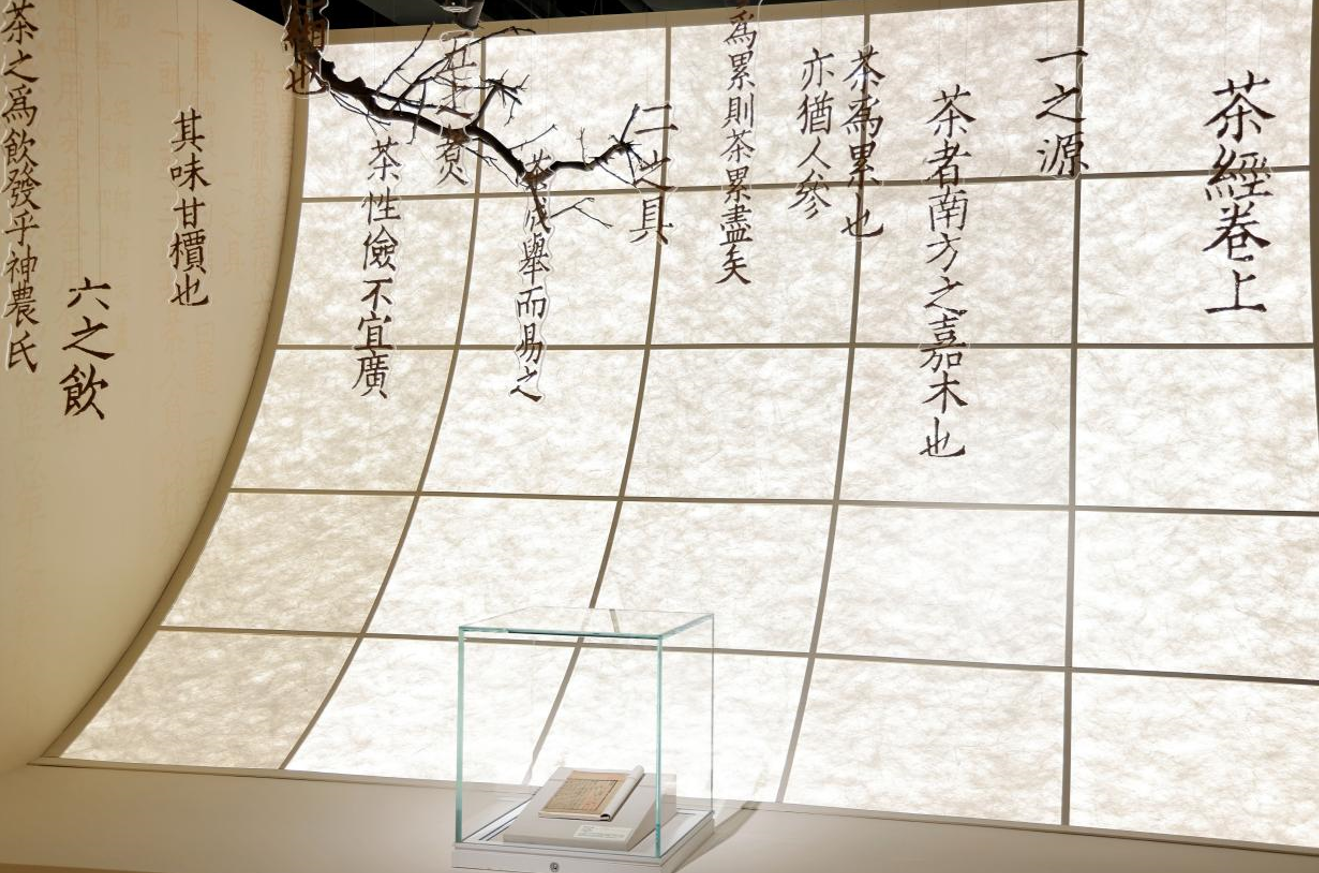 茶經卷上
一之源
茶者南方之嘉木也
茶爲累也
亦猶人參
爲累則茶累盡矣
二之具
茂舉而易之
煮
茶性儉不宜廣
也
其味甘檟也
六之飲
茶之爲飲發乎神農氏